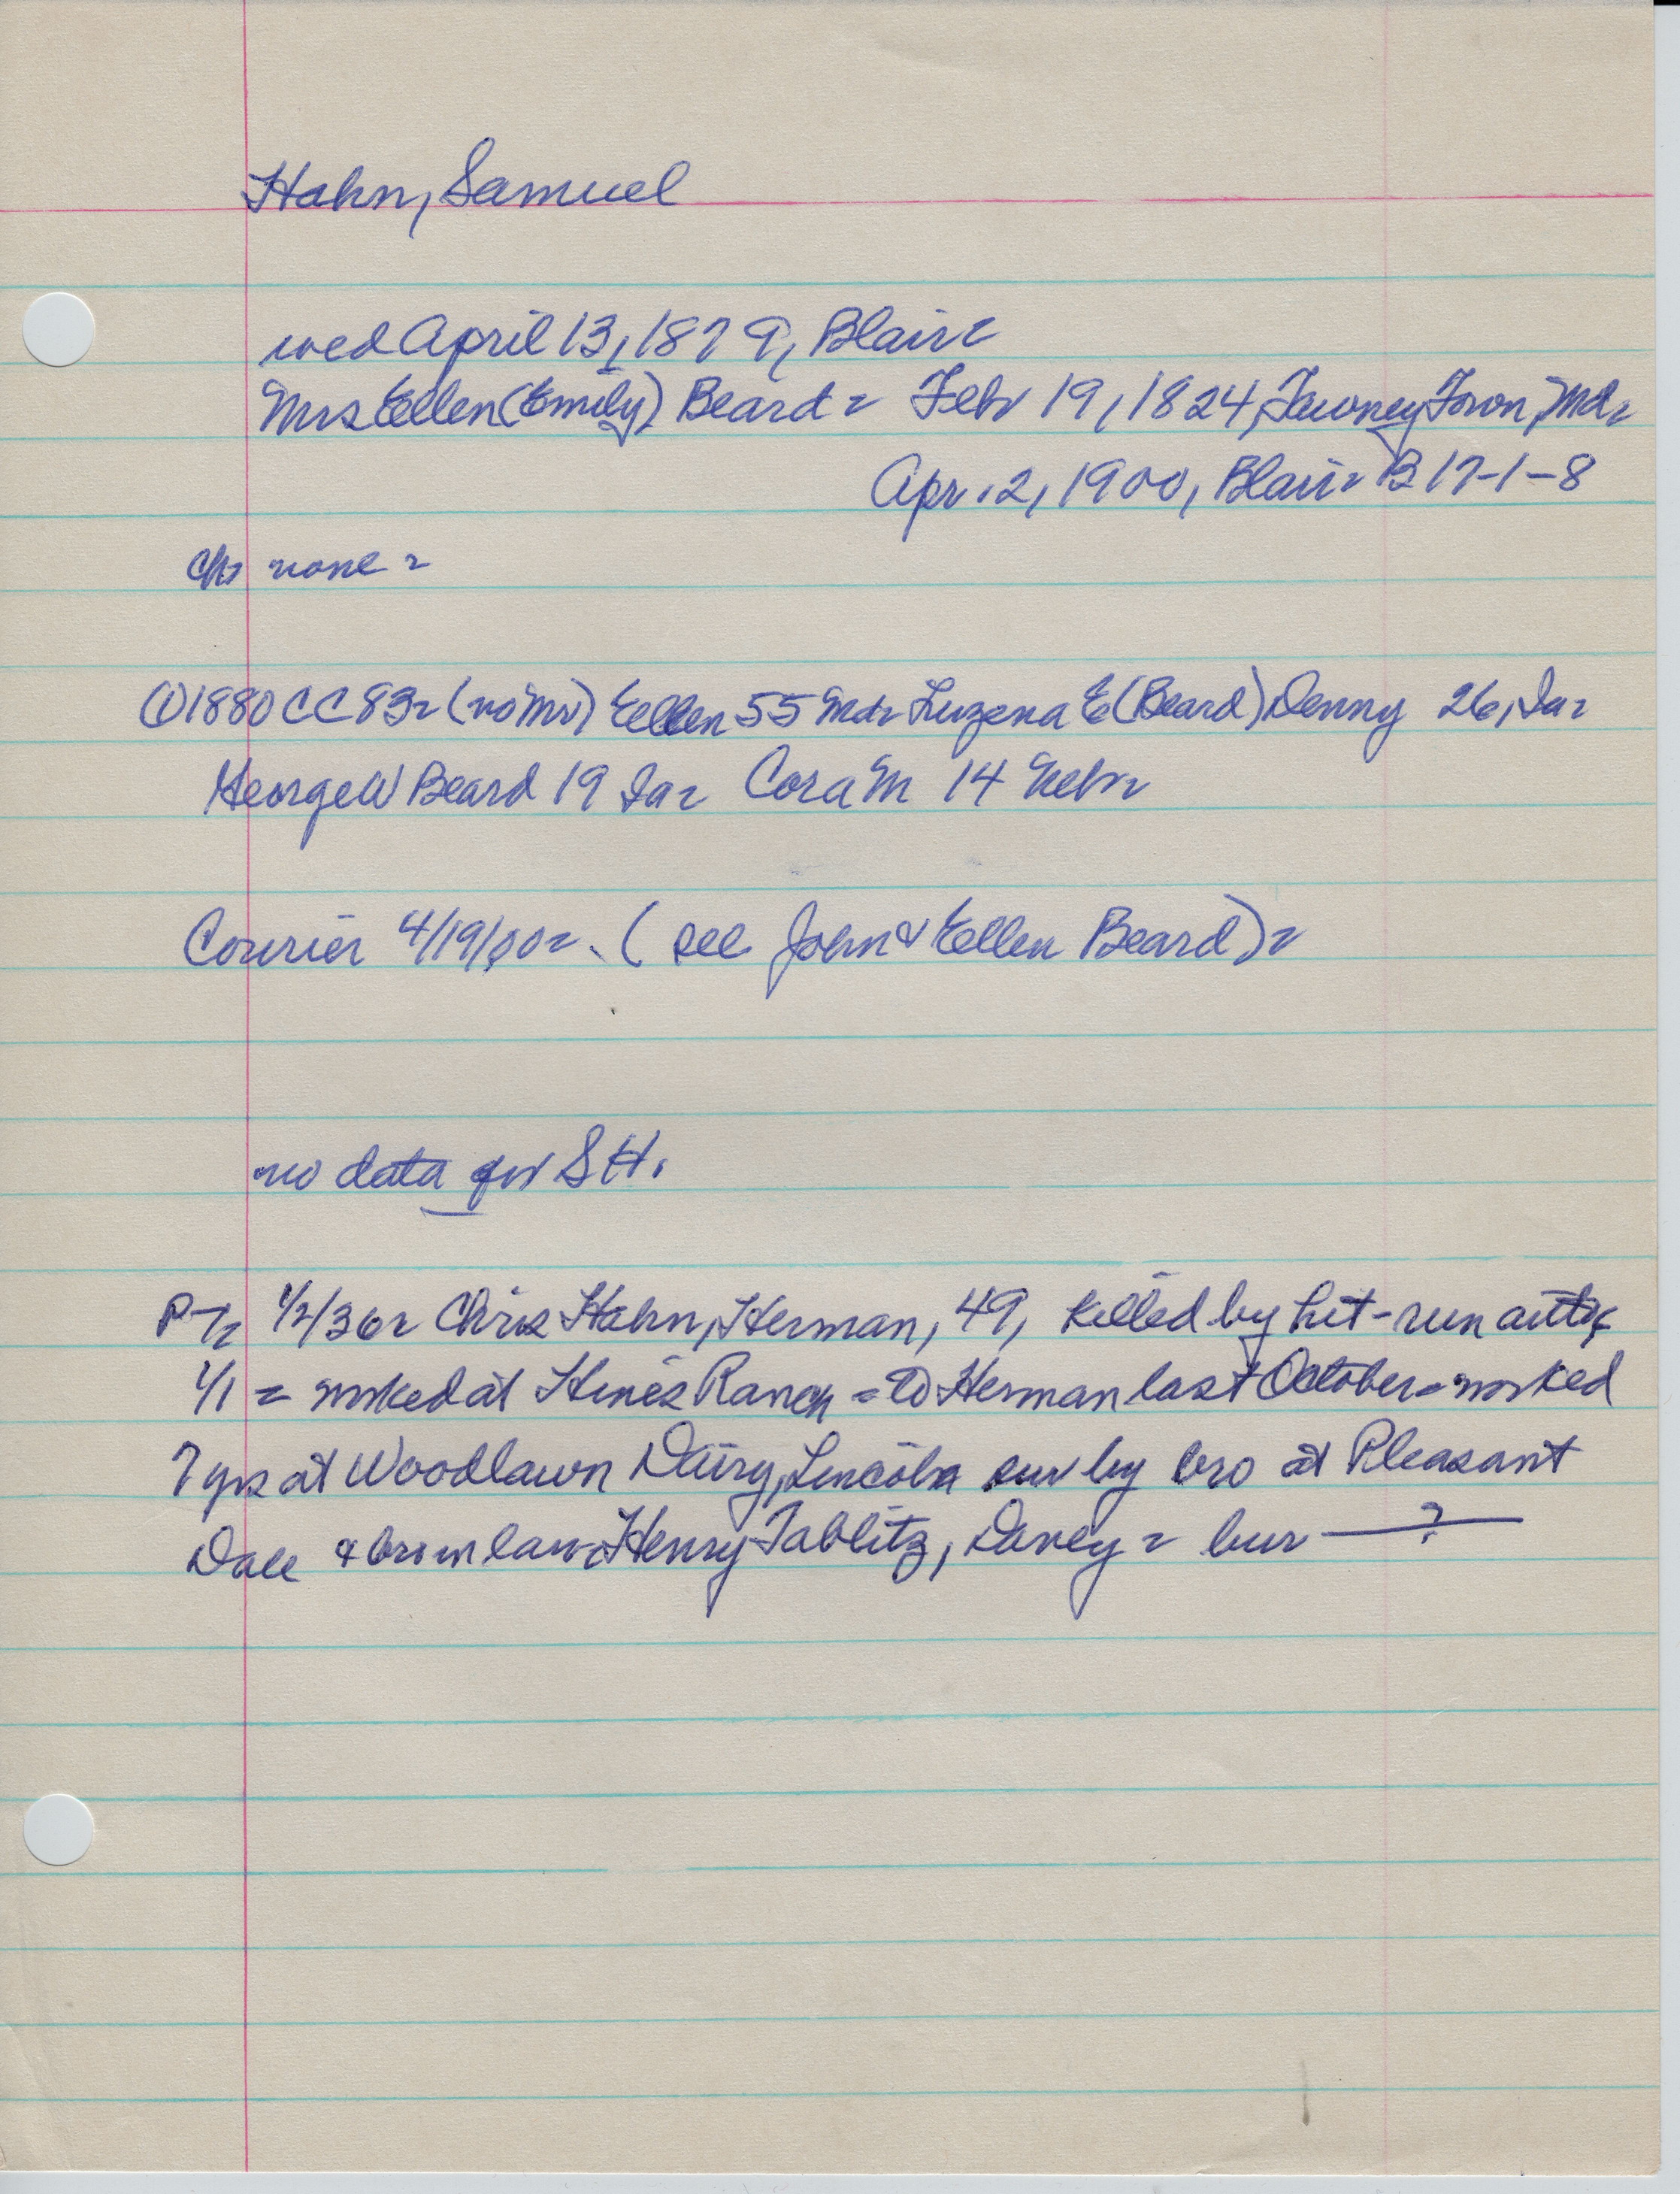 Hahn, Samuel
wed April 13, 1879, Blair=
Mrs Ellen (Emily) Beard = Febr 19, 1824, Tawney Town, Md=
Apr. 2, 1900, Blair= B 17-1-8
Ch= none =
(1) 1880 CC 83= (no Mr) Ellen 55 Md= Luzena E (Beard) Denny 26, Ia=
George W Beard 19 Ia= Cora M 14 Nebr=
Courier 4/19/00=. (see John & Ellen Beard)=
no data for SH.
P-T= 1/2/36= Chris Hahn, Herman, 49, killed by hit-run auto
1/1 = worked at Hines Ranch = to Herman last October = worked
7 yrs at Woodlawn Dairy, Lincoln sur by bro at Pleasant
Dale & bro in law= Henry Tablitz, Davey = bur — ?